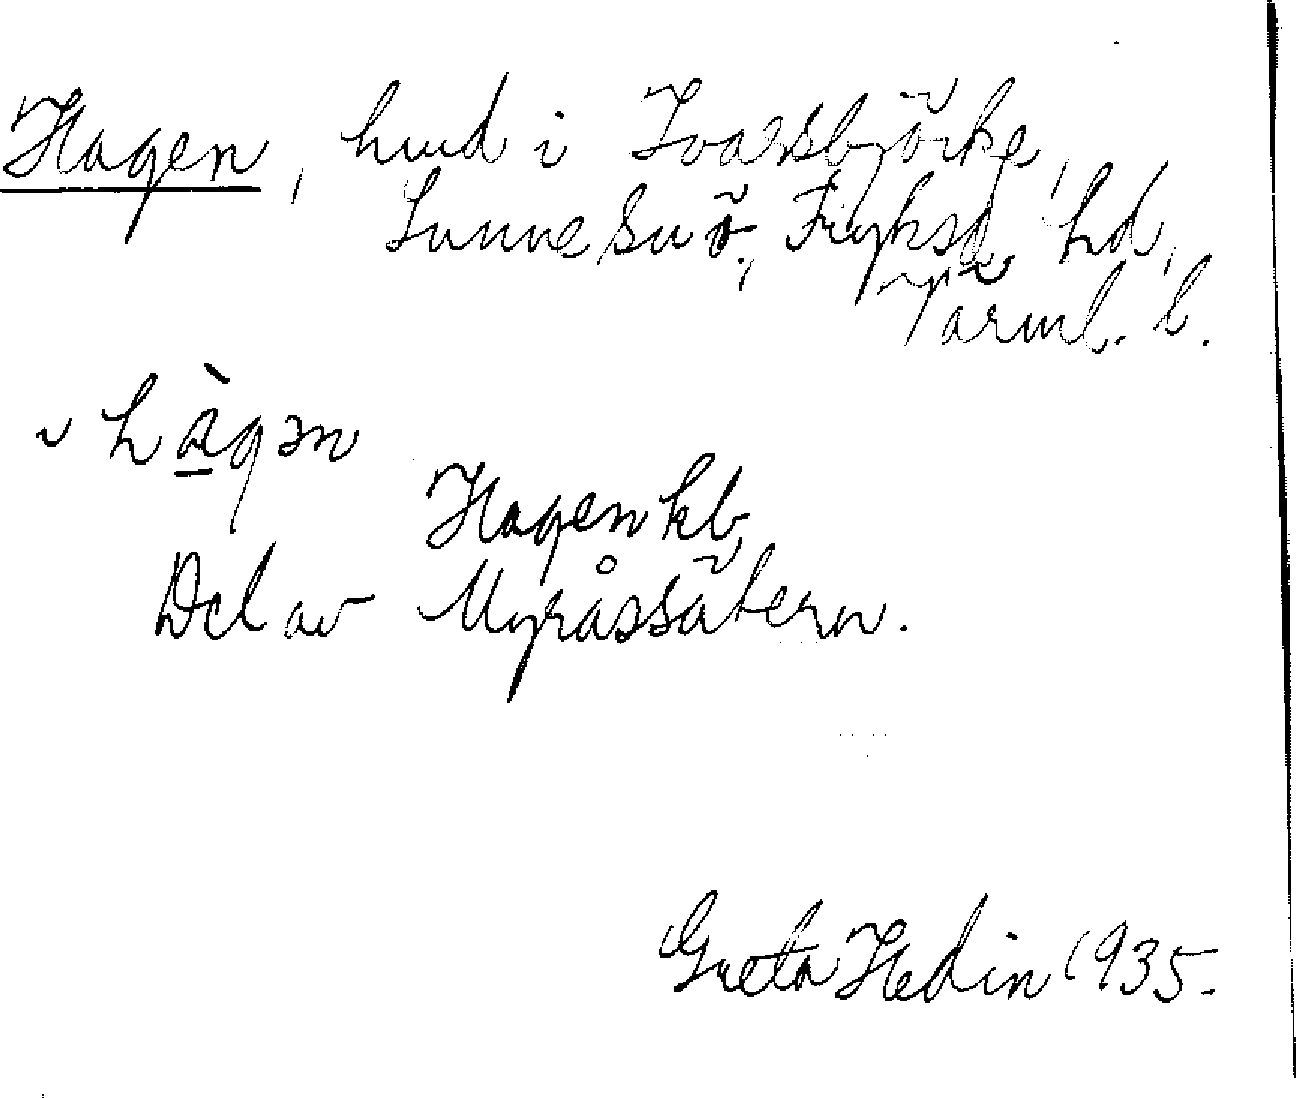 Hagen, hmd i Ivarsbjörke,
Sunne sn Ö., Fryksd. hd,
Värml. l.
hàgən
Hagen kb
Del av Myråssätern.
Greta Hedin 1935.